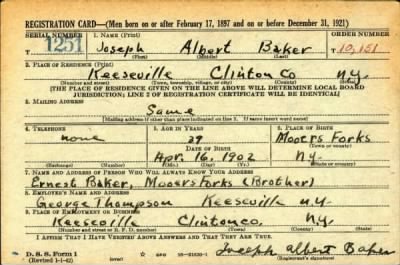 REGISTRATION CARD—(Men born on or after February 17, 1897 and on or before December 31, 1921)
SERIAL NUMBER 1. NAME (Print) ORDER NUMBER
1251 Joseph Albert Baker T10,151
(First) (Middle) (Last)
2. PLACE OF RESIDENCE (Print)
Keeseville Clinton Co n.y.
(Number and street) (Town, township, village, or city) (County) (State)
[THE PLACE OF RESIDENCE GIVEN ON THE LINE ABOVE WILL DETERMINE LOCAL BOARD
JURISDICTION; LINE 2 OF REGISTRATION CERTIFICATE WILL BE IDENTICAL]
3. MAILING ADDRESS
Same
[Mailing address if other than place indicated on line 2. If same insert word same]
4. TELEPHONE 5. AGE IN YEARS 6. PLACE OF BIRTH
none 39 Mooers Forks
DATE OF BIRTH (Town or county)
Apr. 16, 1902 N.y.
(Exchange) (Number) (Mo.) (Day) (Yr.) (State or country)
7. NAME AND ADDRESS OF PERSON WHO WILL ALWAYS KNOW YOUR ADDRESS
Ernest Baker, Mooers Forks (Brother)
8. EMPLOYER'S NAME AND ADDRESS
George Thompson Keeseville n.y.
9. PLACE OF EMPLOYMENT OR BUSINESS
Keeseville Clinton co. N.y.
(Number and street or R. F. D. number) (Town) (County) (State)
I AFFIRM THAT I HAVE VERIFIED ABOVE ANSWERS AND THAT THEY ARE TRUE.
D. S. S. Form 1 Joseph Albert Baker
(Revised 1-1-42) (over) (Registrant's signature)